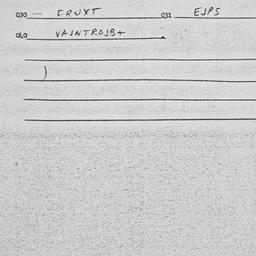 030 — ERUXT 032 EJPS
040 VAJNTROJB+
)